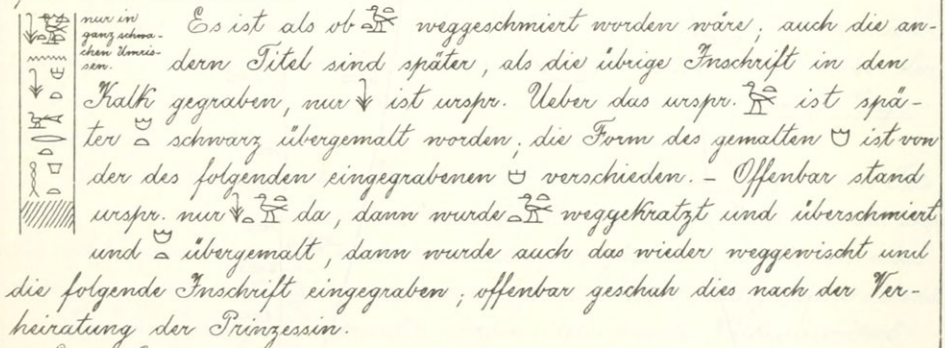 nur in
ganz schwa-
chen Umris-
sen.
Es ist als ob weggeschmiert worden wäre; auch die an-
dern Titel sind später, als die übrige Inschrift in den
Kalk gegraben, nur ist urspr. Ueber das urspr. ist spä-
ter schwarz übergemalt worden; die Form des gemalten ist von
der des folgenden eingegrabenen verschieden. – Offenbar stand
urspr. nur da, dann wurde weggekratzt und überschmiert
und übergemalt, dann wurde auch das wieder weggewischt und
die folgende Inschrift eingegraben; offenbar geschah dies nach der Ver-
heiratung der Prinzessin.